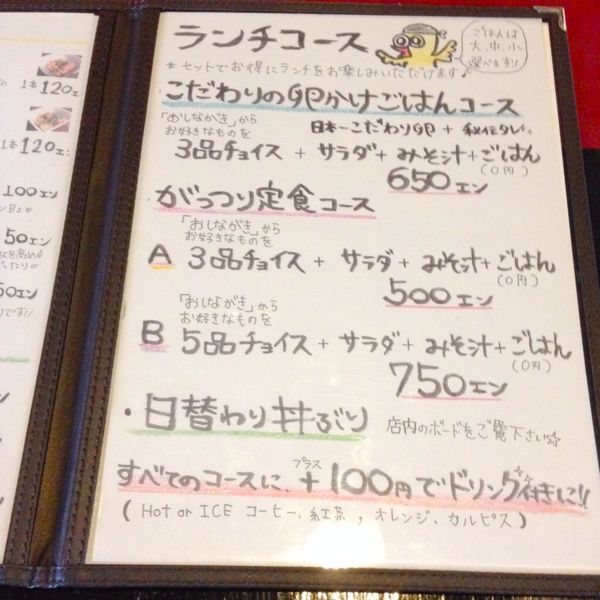 1本120エン
1本120エン
100エン
50エン
ランチコース
ごはんは
大、中、小
選べます♪
＊セットでお得にランチをお楽しみいただけます♪
こだわりの卵かけごはんコース
「おしながき」から
お好きなものを
日本一こだわり卵 + 秘伝タレ
3品チョイス + サラダ + みそ汁 + ごはん
(0円)
650エン
がっつり定食コース
「おしながき」から
お好きなものを
A 3品チョイス + サラダ + みそ汁 + ごはん
(0円)
500エン
「おしながき」から
お好きなものを
B 5品チョイス + サラダ + みそ汁 + ごはん
(0円)
750エン
・日替わり丼ぶり 店内のボードをご覧下さい☆
プラス
すべてのコースに、+100円でドリンク付きに!!
(Hot or ICE コーヒー、紅茶, オレンジ、カルピス)